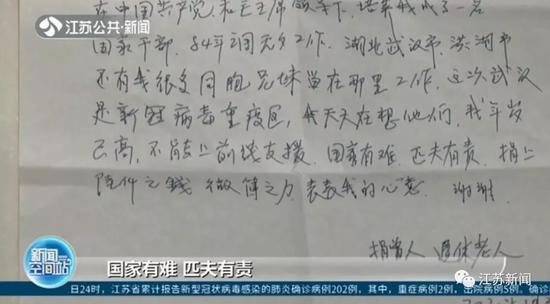 江苏公共·新闻
在中国共产党、和毛主席领导下、培养我成了一名
国家干部、84年调无锡工作、湖北武汉市、洪湖市
还有我很多同胞兄妹留在那里工作、这次武汉
是新冠病毒重疫区、我天天在想他们、我年岁
已高、不能上前线支援、国家有难、匹夫有责、捐上
随件之钱 微薄之力 表表我的心意 谢谢
捐赠人 退休老人
新闻空间站
国家有难 匹夫有责
@江苏新闻
日24时，江苏省累计报告新型冠状病毒感染的肺炎确诊病例202例，其中，重症病例2例，出院病例5例，确诊